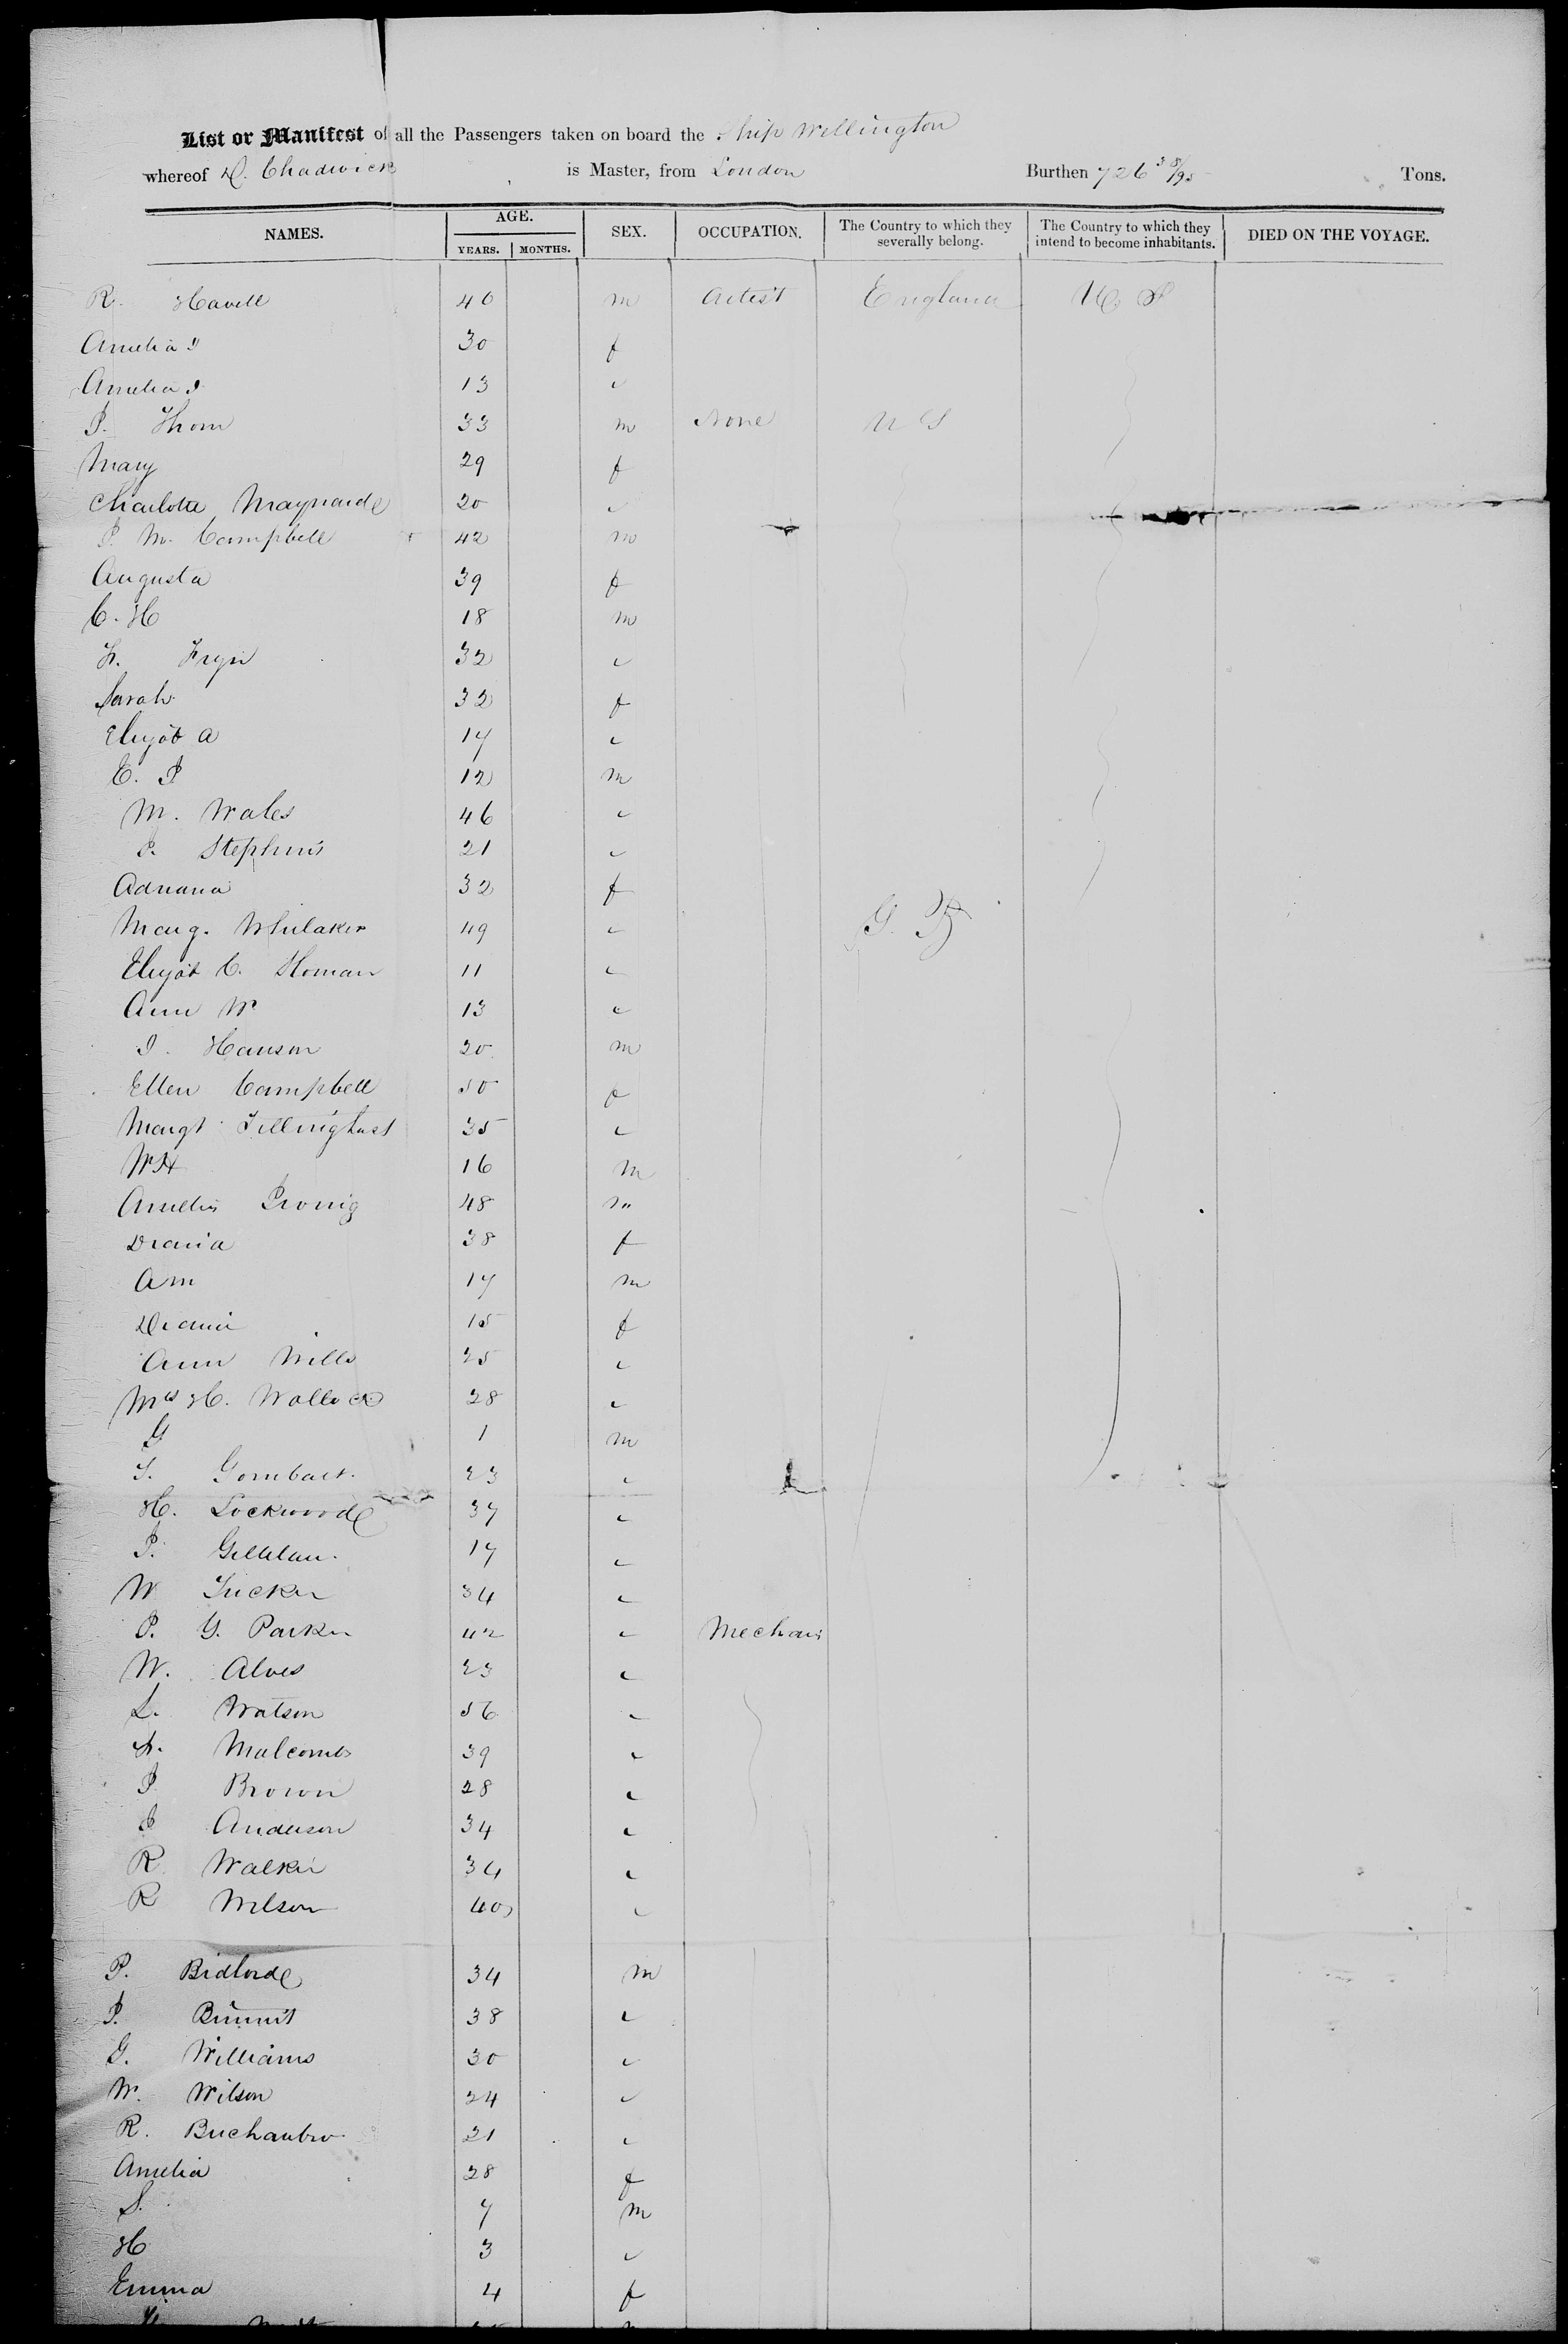 List or Manifest of all the Passengers taken on board the Ship Wellington
whereof D. Chadwick is Master, from London Burthen 726 38/95 Tons.
NAMES. AGE. YEARS. MONTHS. SEX. OCCUPATION. The Country to which they severally belong. The Country to which they intend to become inhabitants. DIED ON THE VOYAGE.
R. Havell 46 m Artist England U. S
Amelia J 30 f
Amelia J 13 "
J. Thorn 33 m None U S
Mary 29 f
Charlotte Maynard 20 "
J. M. Campbell 42 m
Augusta 39 f
C. H 18 m
32 "
Sarah 32 f
Elizabt A 17 "
E. J 12 m
M. Wales 46 "
J. Stephens 21 "
Adriana 32 f
Marg. Whitaker 49 " G. B
Elizabt C. Homan 11 "
Ann W 13 "
J. Hanson 20 m
Ellen Campbell 50 f
Margt Tillinghast 35 "
W H 16 m
48 m
38 f
Am 17 m
15 f
Ann Wills 25 "
Mrs H. Wallack 28 "
G 1 m
S. Gombart. 23 "
H. Lockwood 37 "
J. Gillilan. 17 "
W Tucker 34 "
P. G. Parker 42 " Mechani
W. Alves 23 "
L. Watson 56 "
A. Malcomb 39 "
J. Brown 28 "
J Anderson 34 "
R Walker 34 "
R Wilson 40 "
P. Bidford 34 m
J. 38 "
G. Williams 30 "
W. Wilson 24 "
R. 21 "
Amelia 28 f
S. 7 m
H 3 "
Emma 4 f